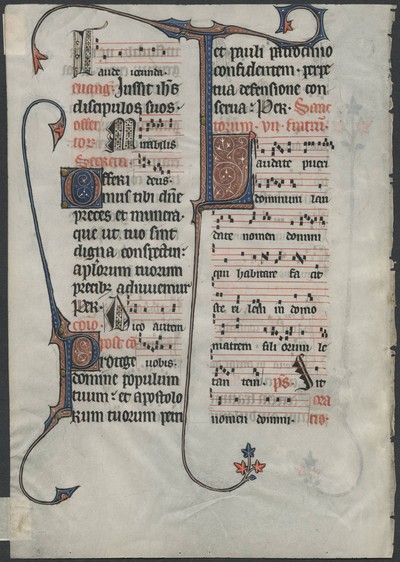 Laude iocunda.
euang. Iussit ihs
discipulos suos
offer
tor. Mirabilis
Secreta
Offeri deus
mus tibi dne
preces et munera.
que ut tuo sint
digna conspectui.
aplorum tuorum
precibz adiuuemur
Per.
co͞io. Dico autem
post co͞
Protege uobis.
domine populum
tuum. et apostolo
rum tuorum petri
et pauli patrocinio
confidentem. perpe
tua defensione con
serua. Per. Sanc
torum. vii. fratru͞.
Laudate pueri
dominum lau
date nomen domini
qui habitare fa cit
ste ri lem in domo
matrem fili orum le
tan tem. ps. Sit
nomen domini. ora
tio.